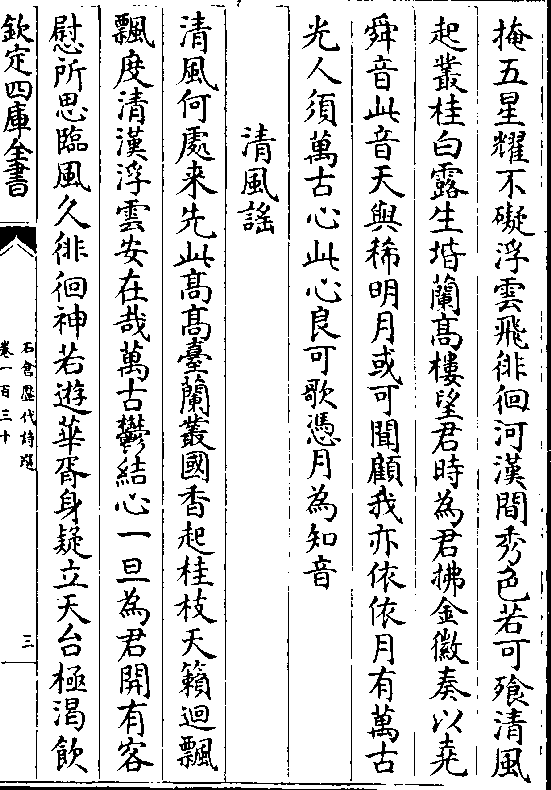 掩五星耀不礙浮雲飛徘徊河漢間秀色若可飱清風
起叢桂白露生堦蘭高樓望君時為君拂金徽奏以堯
舜音此音天與稀明月或可聞顧我亦依依月有萬古
光人須萬古心此心良可歌憑月為知音
清風謠
清風何處来先此高高臺蘭叢國香起桂枝天籟迴飄
飄度清漢浮雲安在哉萬古鬱結心一旦為君開有客
慰所思臨風久徘徊神若遊華胥身疑立天台極渴飲
欽定四庫全書
石倉歷代詩選
卷一百三十
三